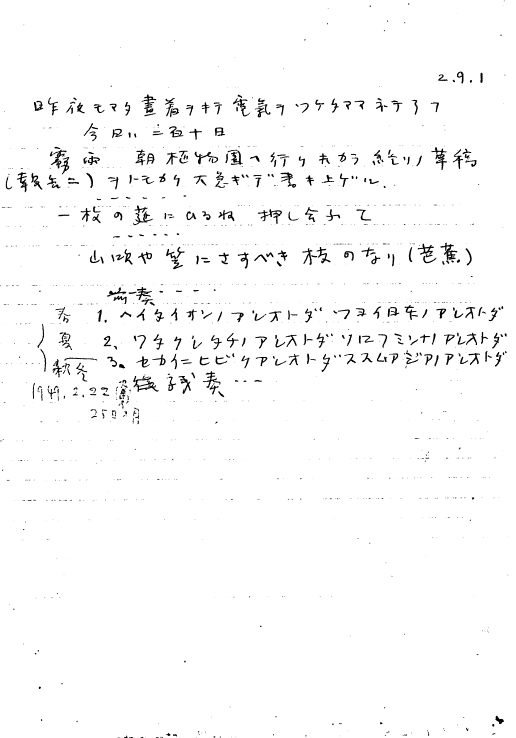 2.9.1
昨夜モマタ晝着ヲキテ電氣ヲツケタママネテ
今日ハ二百十日
霧雨 朝植物園ヘ行
草稿
(報告二)ヲトモカク大急ギデ書キ上ゲル.
一枚の莚にひるね押し合ふて
山吹や笠にさすべき枝のなり(芭蕉)
前奏・・・・
春 1. ヘイタイサンノアシオトダ ツヨイ日本ノアシオトダ
夏 2. ワタクシタチノアシオトダソロフミンナノアシオトダ
秋冬 3. セカイニヒビクアシオトダススムアジアノアシオトダ
奏・・・
1949.2.22
25日